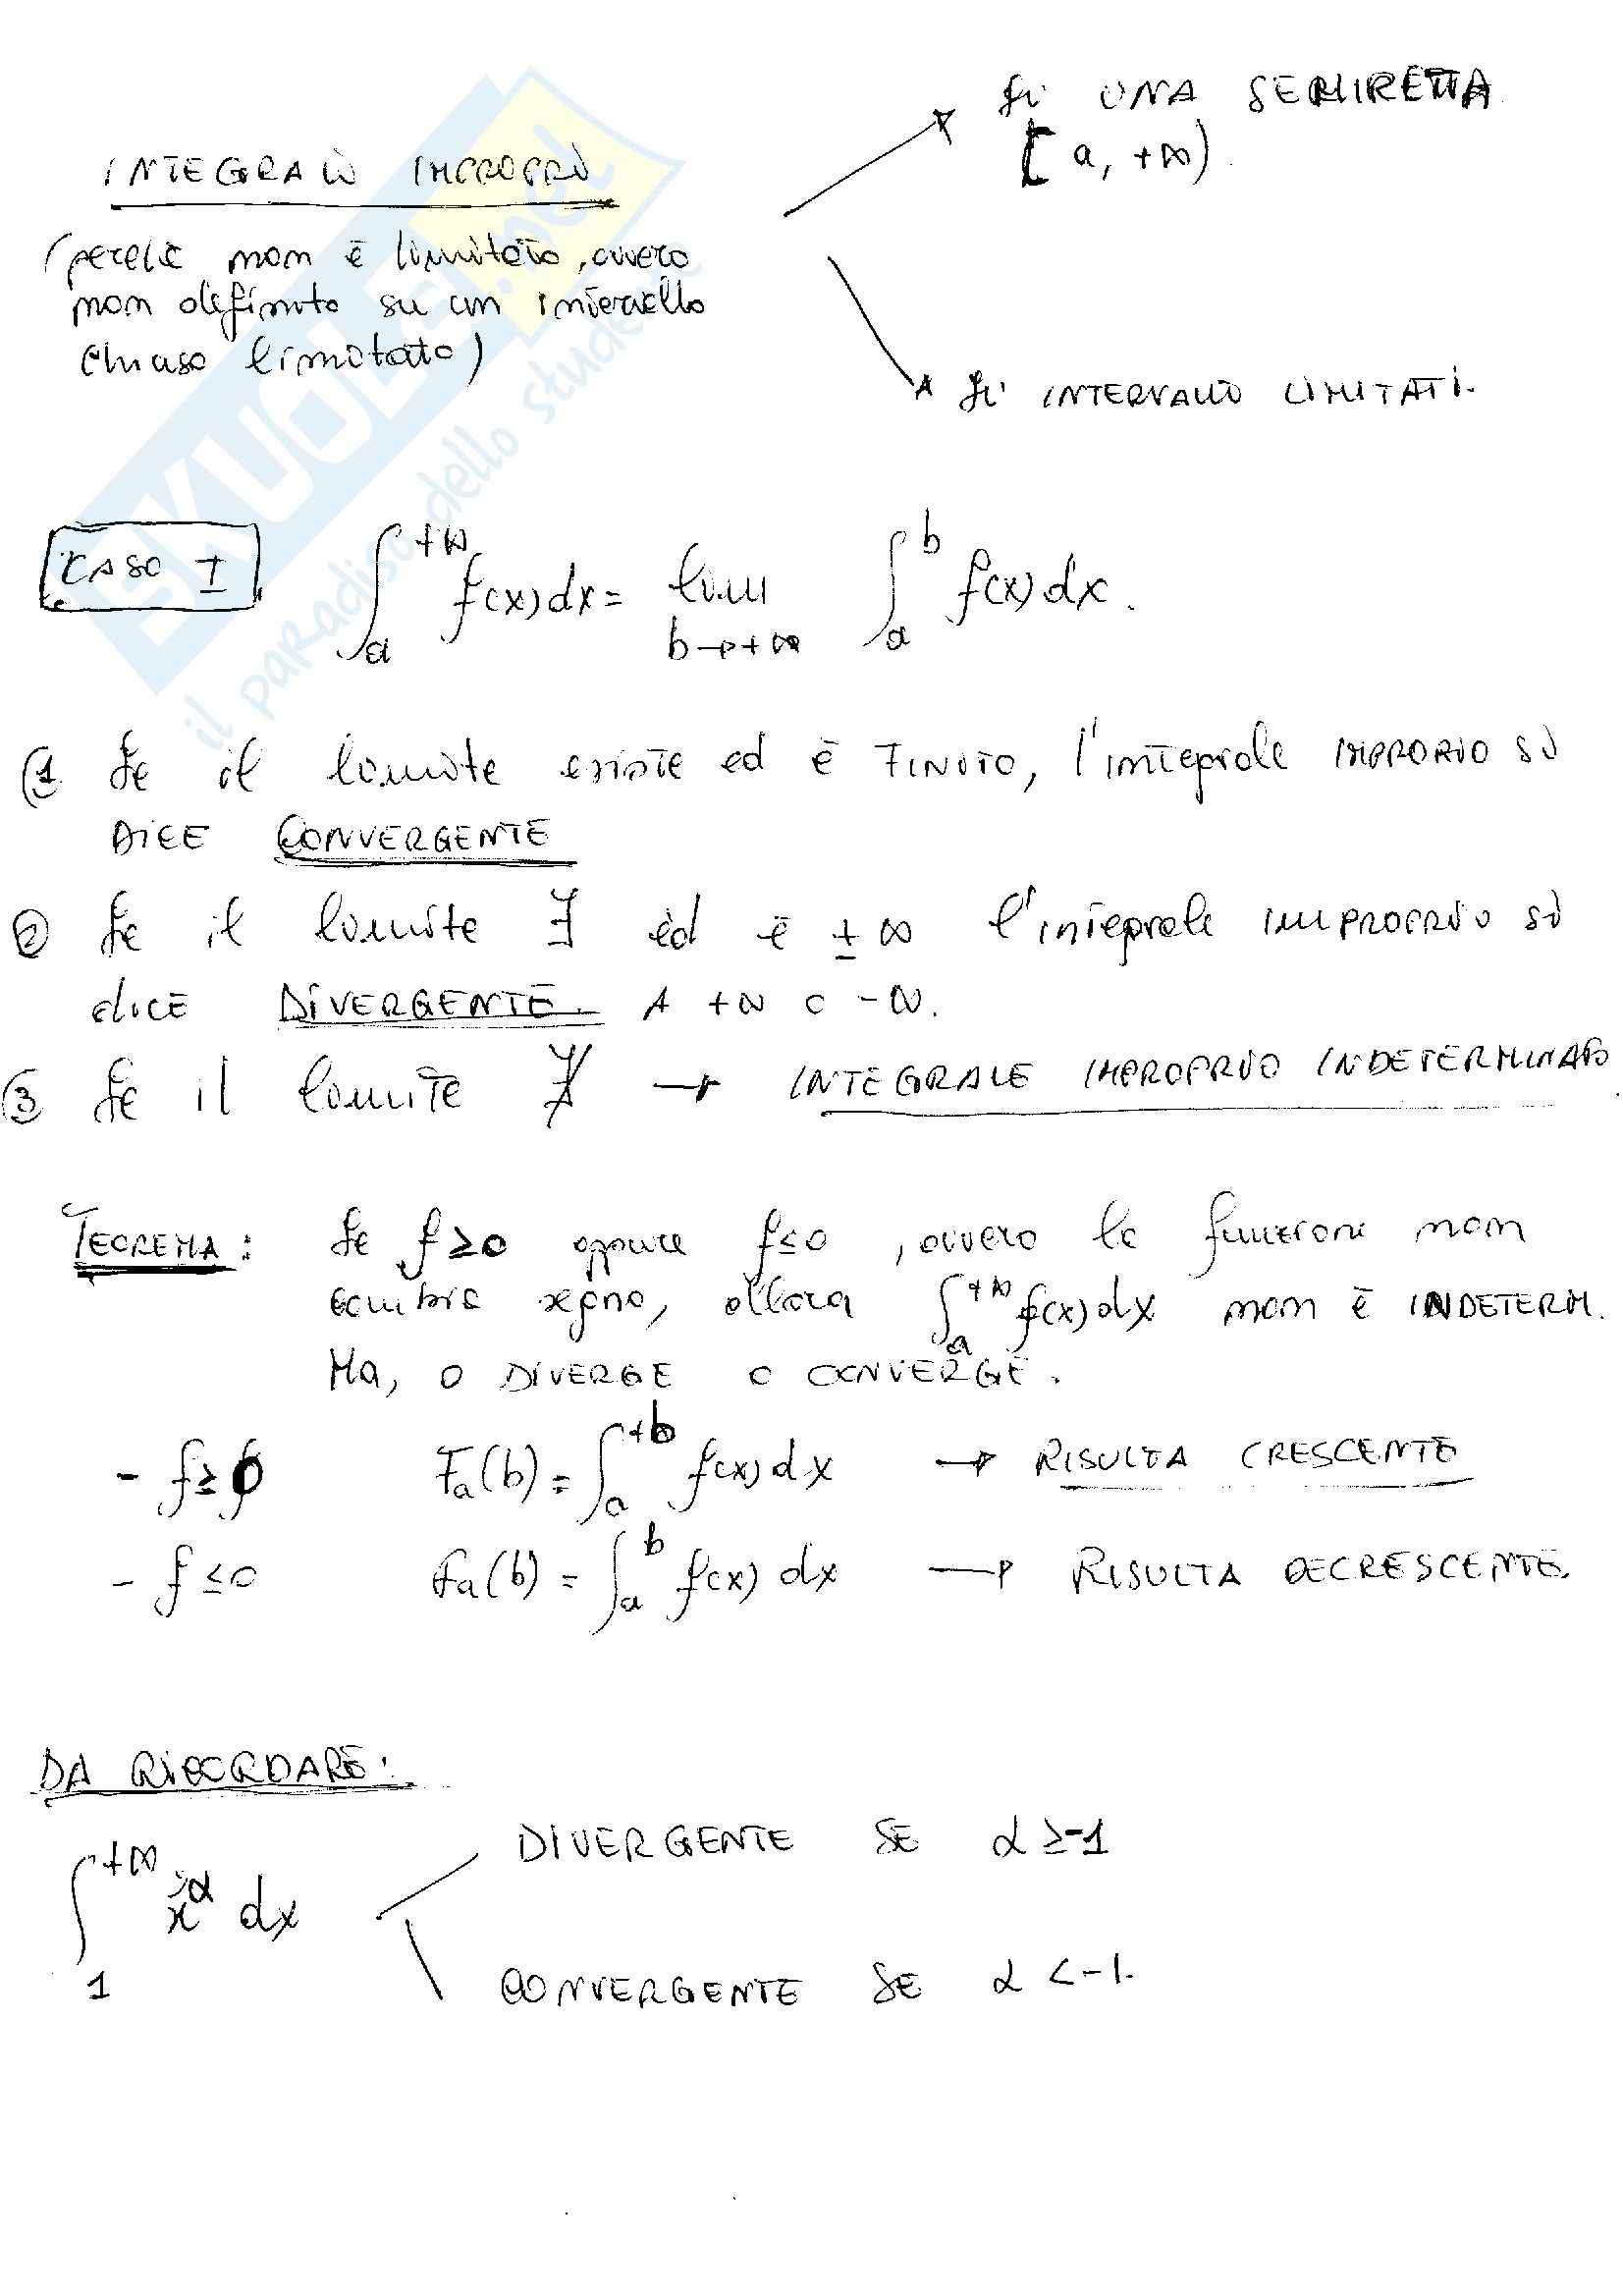 INTEGRALI IMPROPRI
(perché non è limitato, ovvero
non definito su un intervallo
chiuso limitato)
SU UNA SEMIRETTA
[a, +∞).
SU INTERVALLI LIMITATI.
CASO I
∫_a^{+∞} f(x)dx = lim_{b→+∞} ∫_a^b f(x)dx.
① Se il limite esiste ed è FINITO, l'integrale IMPROPRIO SI
DICE CONVERGENTE
② Se il limite ∃ ed è ±∞ l'integrale IMPROPRIO SI
dice DIVERGENTE. A +∞ o -∞.
③ Se il limite ∄ → INTEGRALE IMPROPRIO INDETERMINATO
TEOREMA: Se f≥0 oppure f≤0, ovvero la funzione non
cambia segno, allora ∫_a^{+∞} f(x)dx non è INDETERM.
Ma, o DIVERGE o CONVERGE.
- f≥0 F_a(b) = ∫_a^b f(x)dx → RISULTA CRESCENTE
- f≤0 F_a(b) = ∫_a^b f(x)dx → RISULTA DECRESCENTE.
DA RICORDARE:
∫_1^{+∞} x^α dx
DIVERGENTE SE α ≥ -1
CONVERGENTE SE α < -1.
SKUOLA.net
il paradiso dello studente